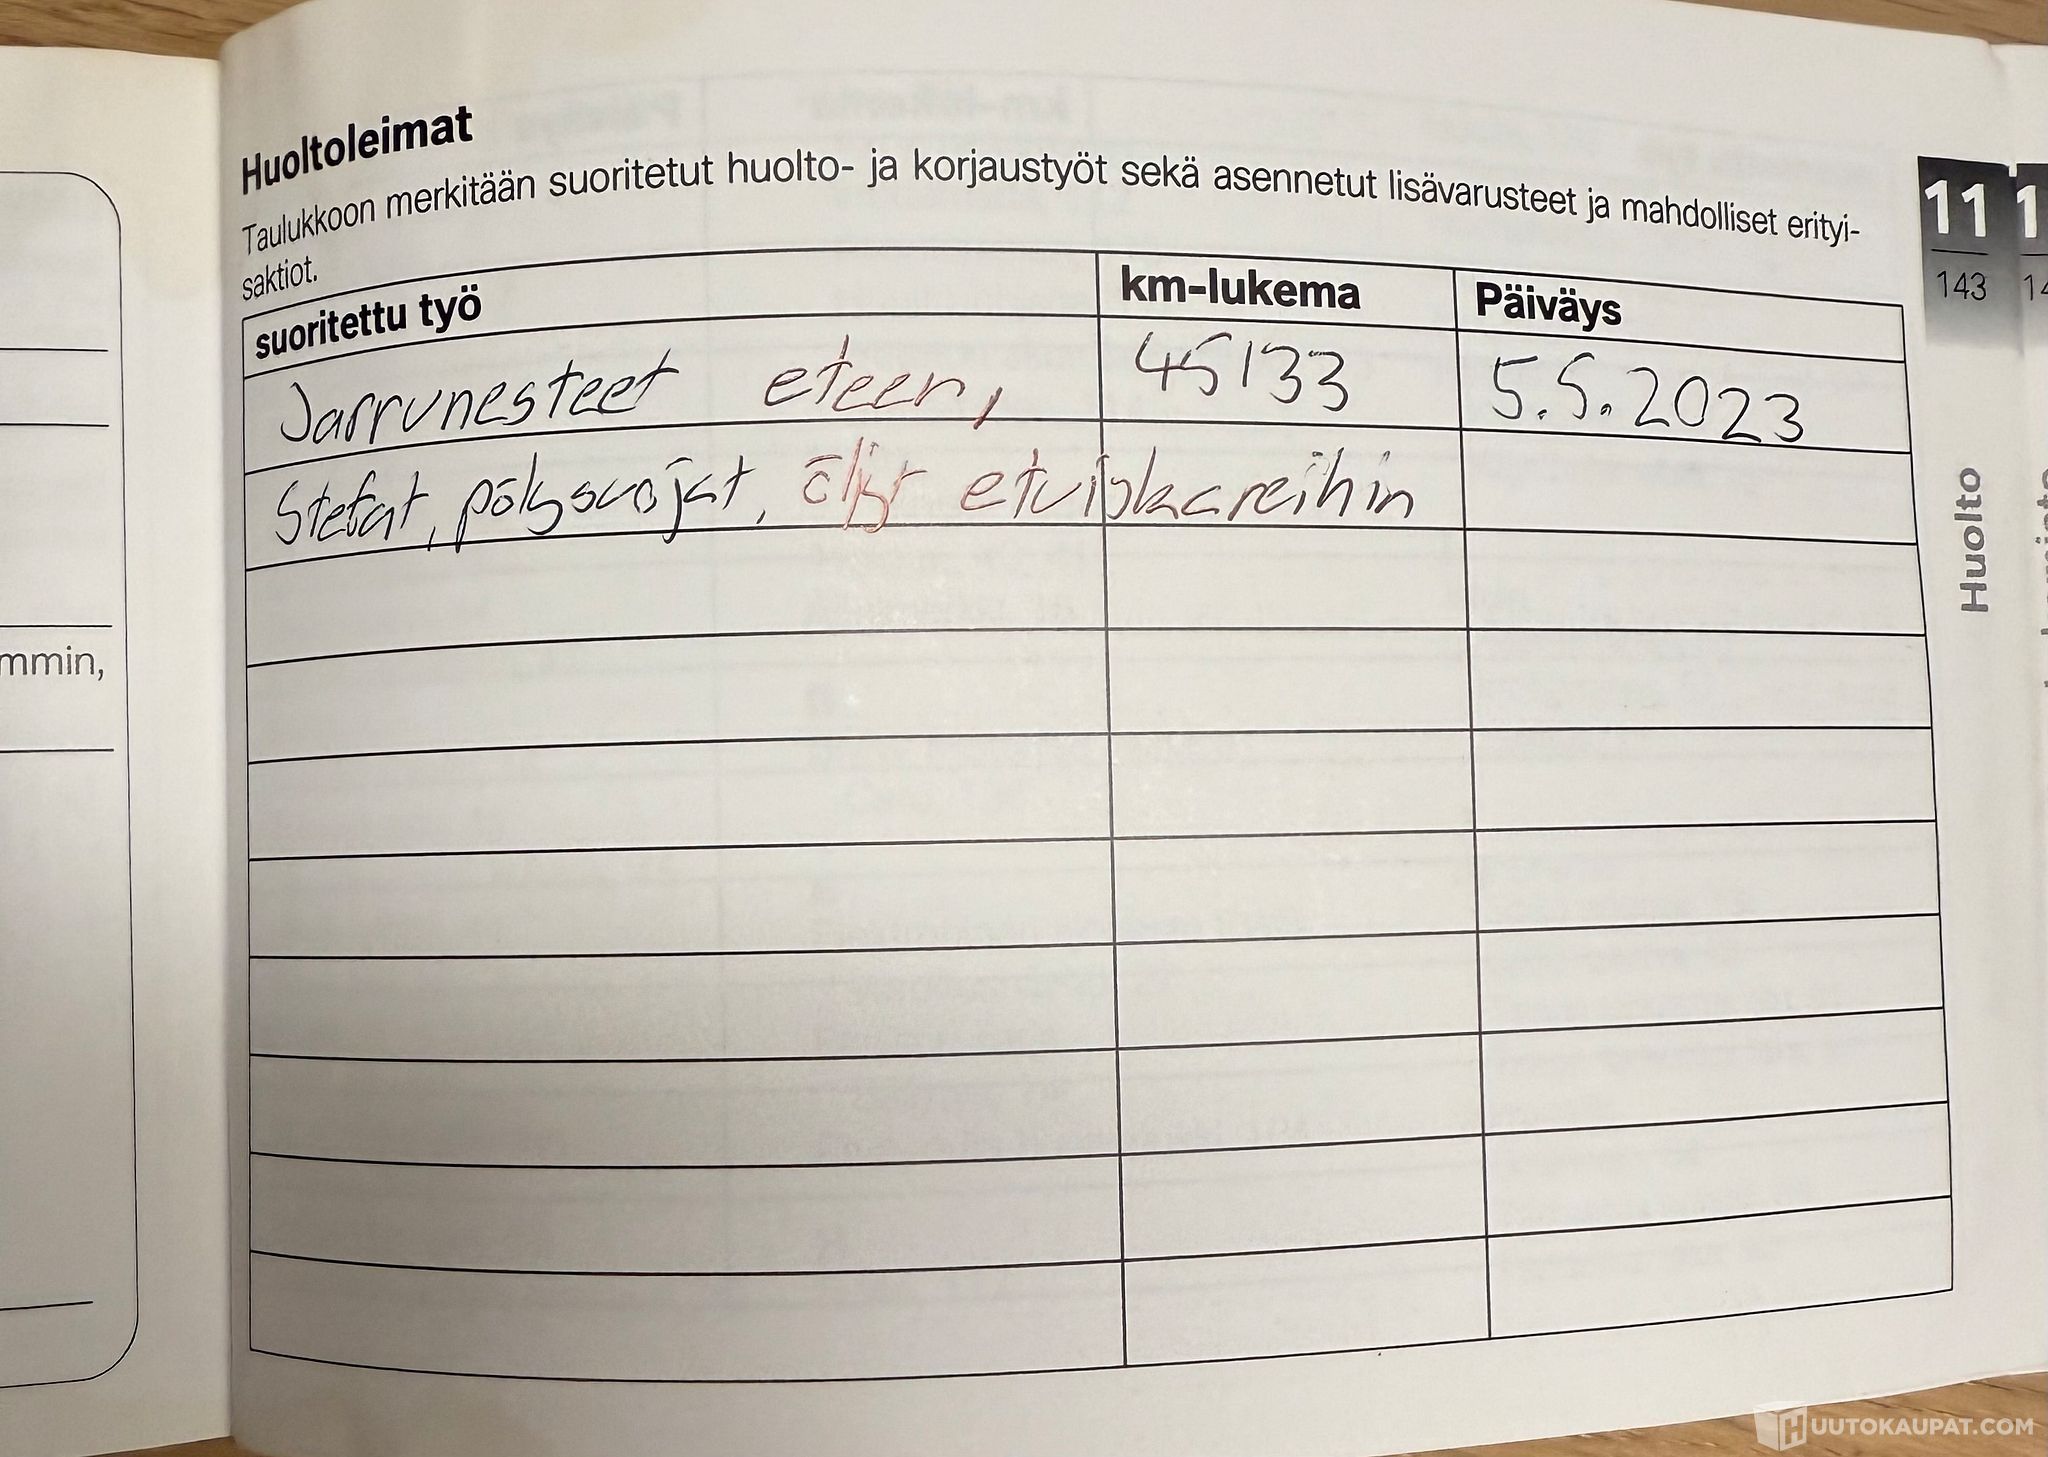 Huoltoleimat
Taulukkoon merkitään suoritetut huolto- ja korjaustyöt sekä asennetut lisävarusteet ja mahdolliset erityi-
saktiot.
suoritettu työ km-lukema Päiväys
Jarrunesteet eteen, 45133 5.5.2023
Stefat, pölysuojat, öljyt etuiskareihin
11
143
Huolto
mmin,
UUTOKAUPAT.COM